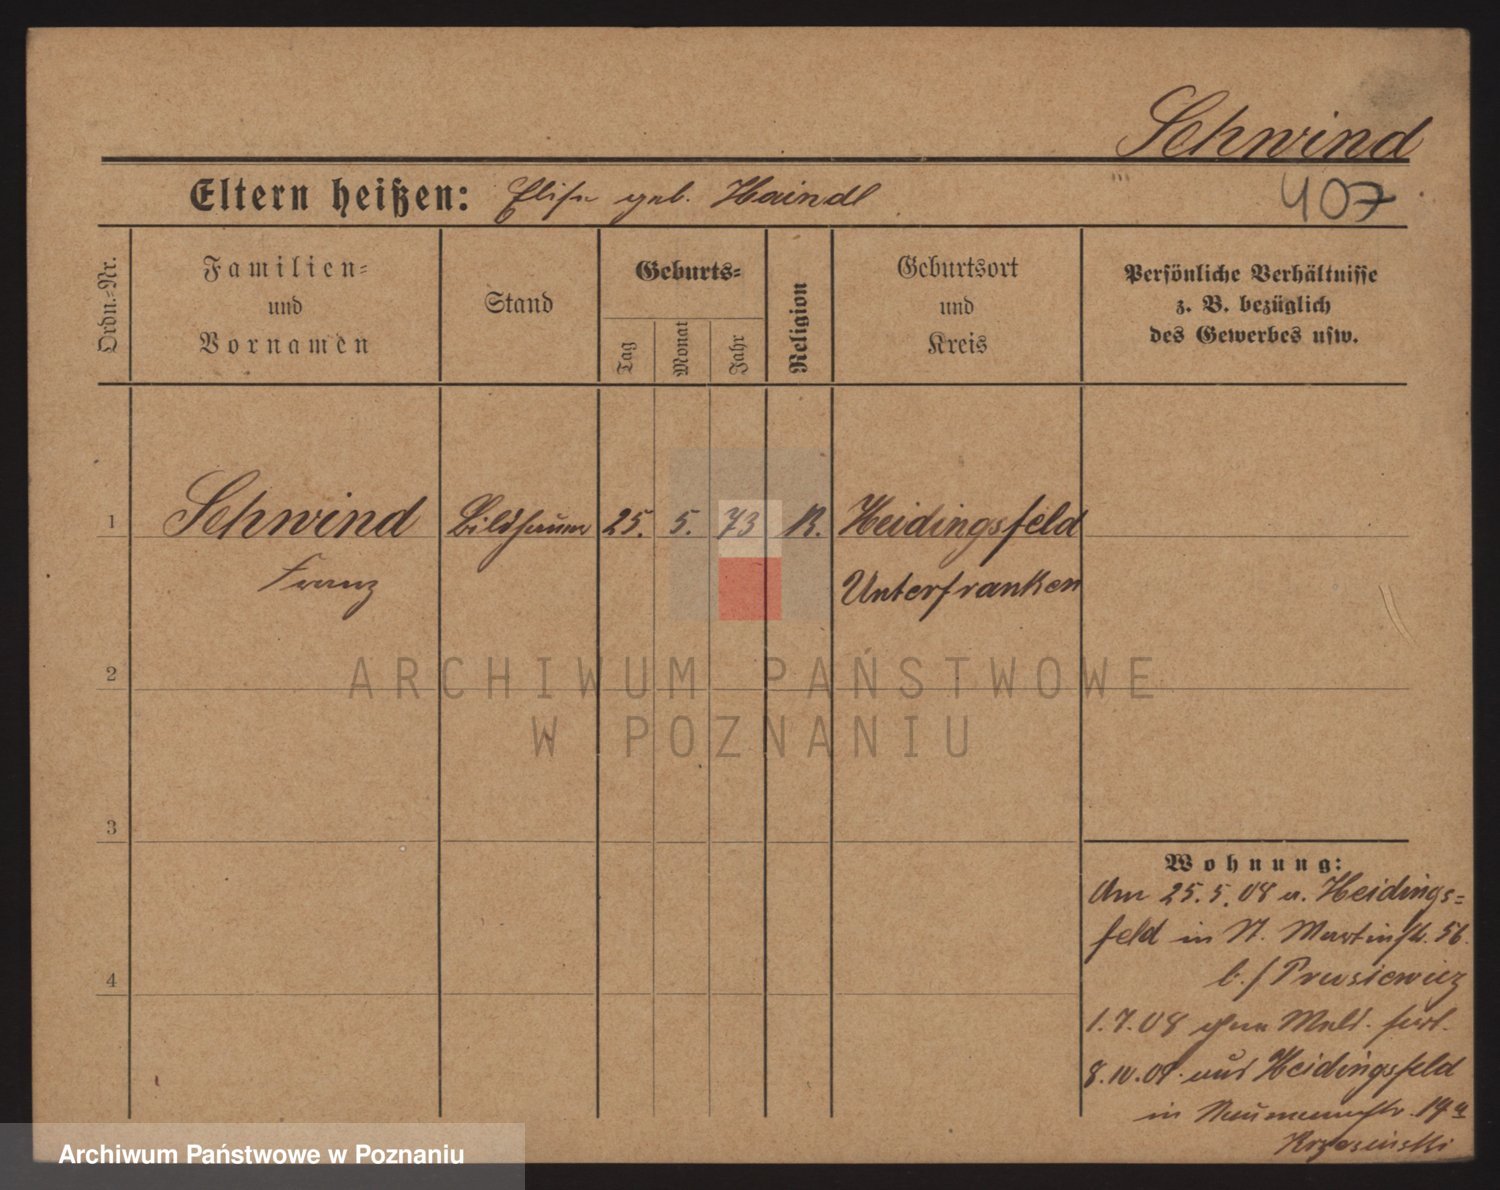 Schwind
407
Eltern heißen: Elise geb. Haindl
Ordn.-Nr.
Familien-
und
Vornamen
Stand
Geburts-
Tag
Monat
Jahr
Religion
Geburtsort
und
Kreis
Persönliche Verhältnisse
z. B. bezüglich
des Gewerbes usw.
1
Schwind
Franz
Bildhauer
25.
5.
73
K.
Heidingsfeld
Unterfranken
2
3
4
Wohnung:
Am 25.5.08 a. Heidings-
feld in St. Martinstr. 56.
b./ Prusiewicz
1.7.08 ohne Meld. fort.
8.10.08. aus Heidingsfeld
in Naumannstr. 19a
Krzesinski
ARCHIWUM PAŃSTWOWE
W POZNANIU
Archiwum Państwowe w Poznaniu